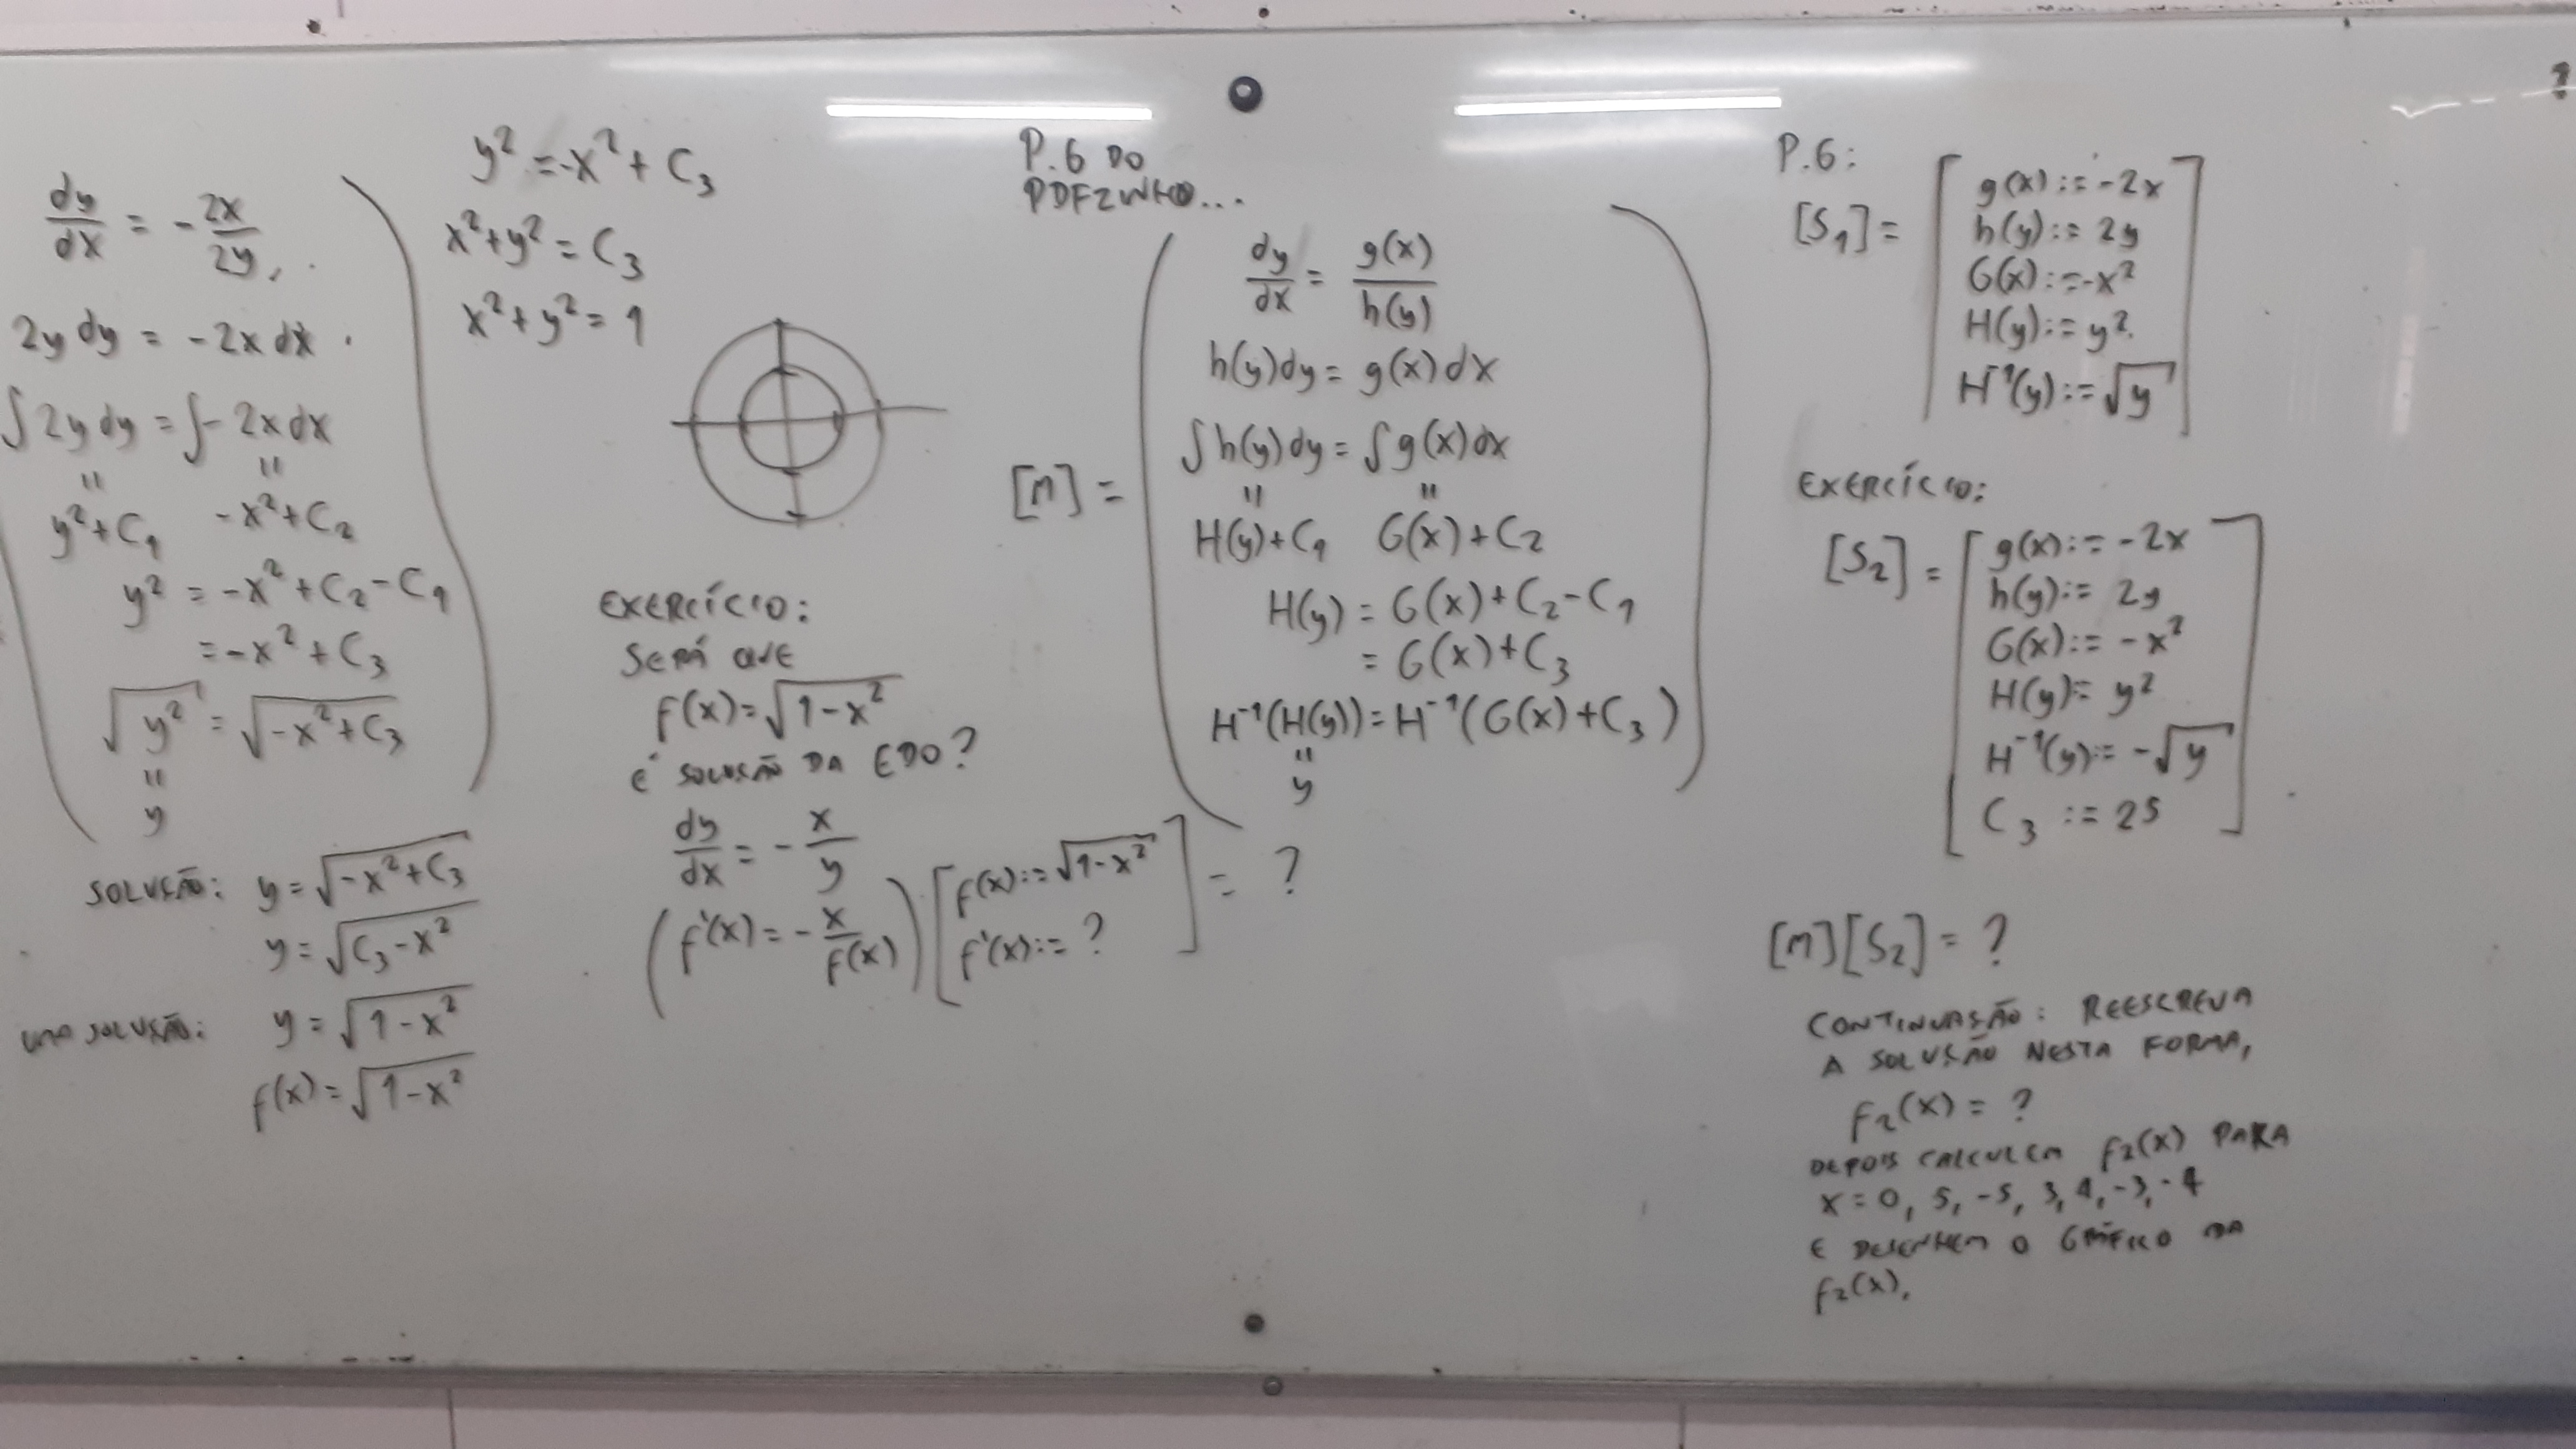 dy/dx = - 2x/2y,
2y dy = -2x dx.
∫ 2y dy = ∫ -2x dx
" "
y² + C₁ -x² + C₂
y² = -x² + C₂ - C₁
= -x² + C₃
√y² = √(-x² + C₃)
"
y
SOLUÇÃO: y = √(-x² + C₃)
y = √(C₃ - x²)
UMA SOLUÇÃO: y = √(1 - x²)
f(x) = √(1 - x²)
y² = -x² + C₃
x² + y² = C₃
x² + y² = 1
EXERCÍCIO:
SERÁ QUE
f(x) = √(1 - x²)
É SOLUÇÃO DA EDO?
dy/dx = - x/y
(f'(x) = - x/f(x)) [f(x) := √(1 - x²)
f'(x) := ?] = ?
P.6 DO
PDFZINHO...
[M] =
dy/dx = g(x)/h(y)
h(y) dy = g(x) dx
∫ h(y) dy = ∫ g(x) dx
" "
H(y) + C₁ G(x) + C₂
H(y) = G(x) + C₂ - C₁
= G(x) + C₃
H⁻¹(H(y)) = H⁻¹(G(x) + C₃)
"
y
P.6:
[S₁] =
g(x) := -2x
h(y) := 2y
G(x) := -x²
H(y) := y²
H⁻¹(y) := √y
EXERCÍCIO:
[S₂] =
g(x) := -2x
h(y) := 2y
G(x) := -x²
H(y) := y²
H⁻¹(y) := -√y
C₃ := 25
[M][S₂] = ?
CONTINUAÇÃO: REESCREVA
A SOLUÇÃO NESTA FORMA,
f₂(x) = ?
DEPOIS CALCULEM f₂(x) PARA
x = 0, 5, -5, 3, 4, -3, -4
E DESENHEM O GRÁFICO DA
f₂(x).